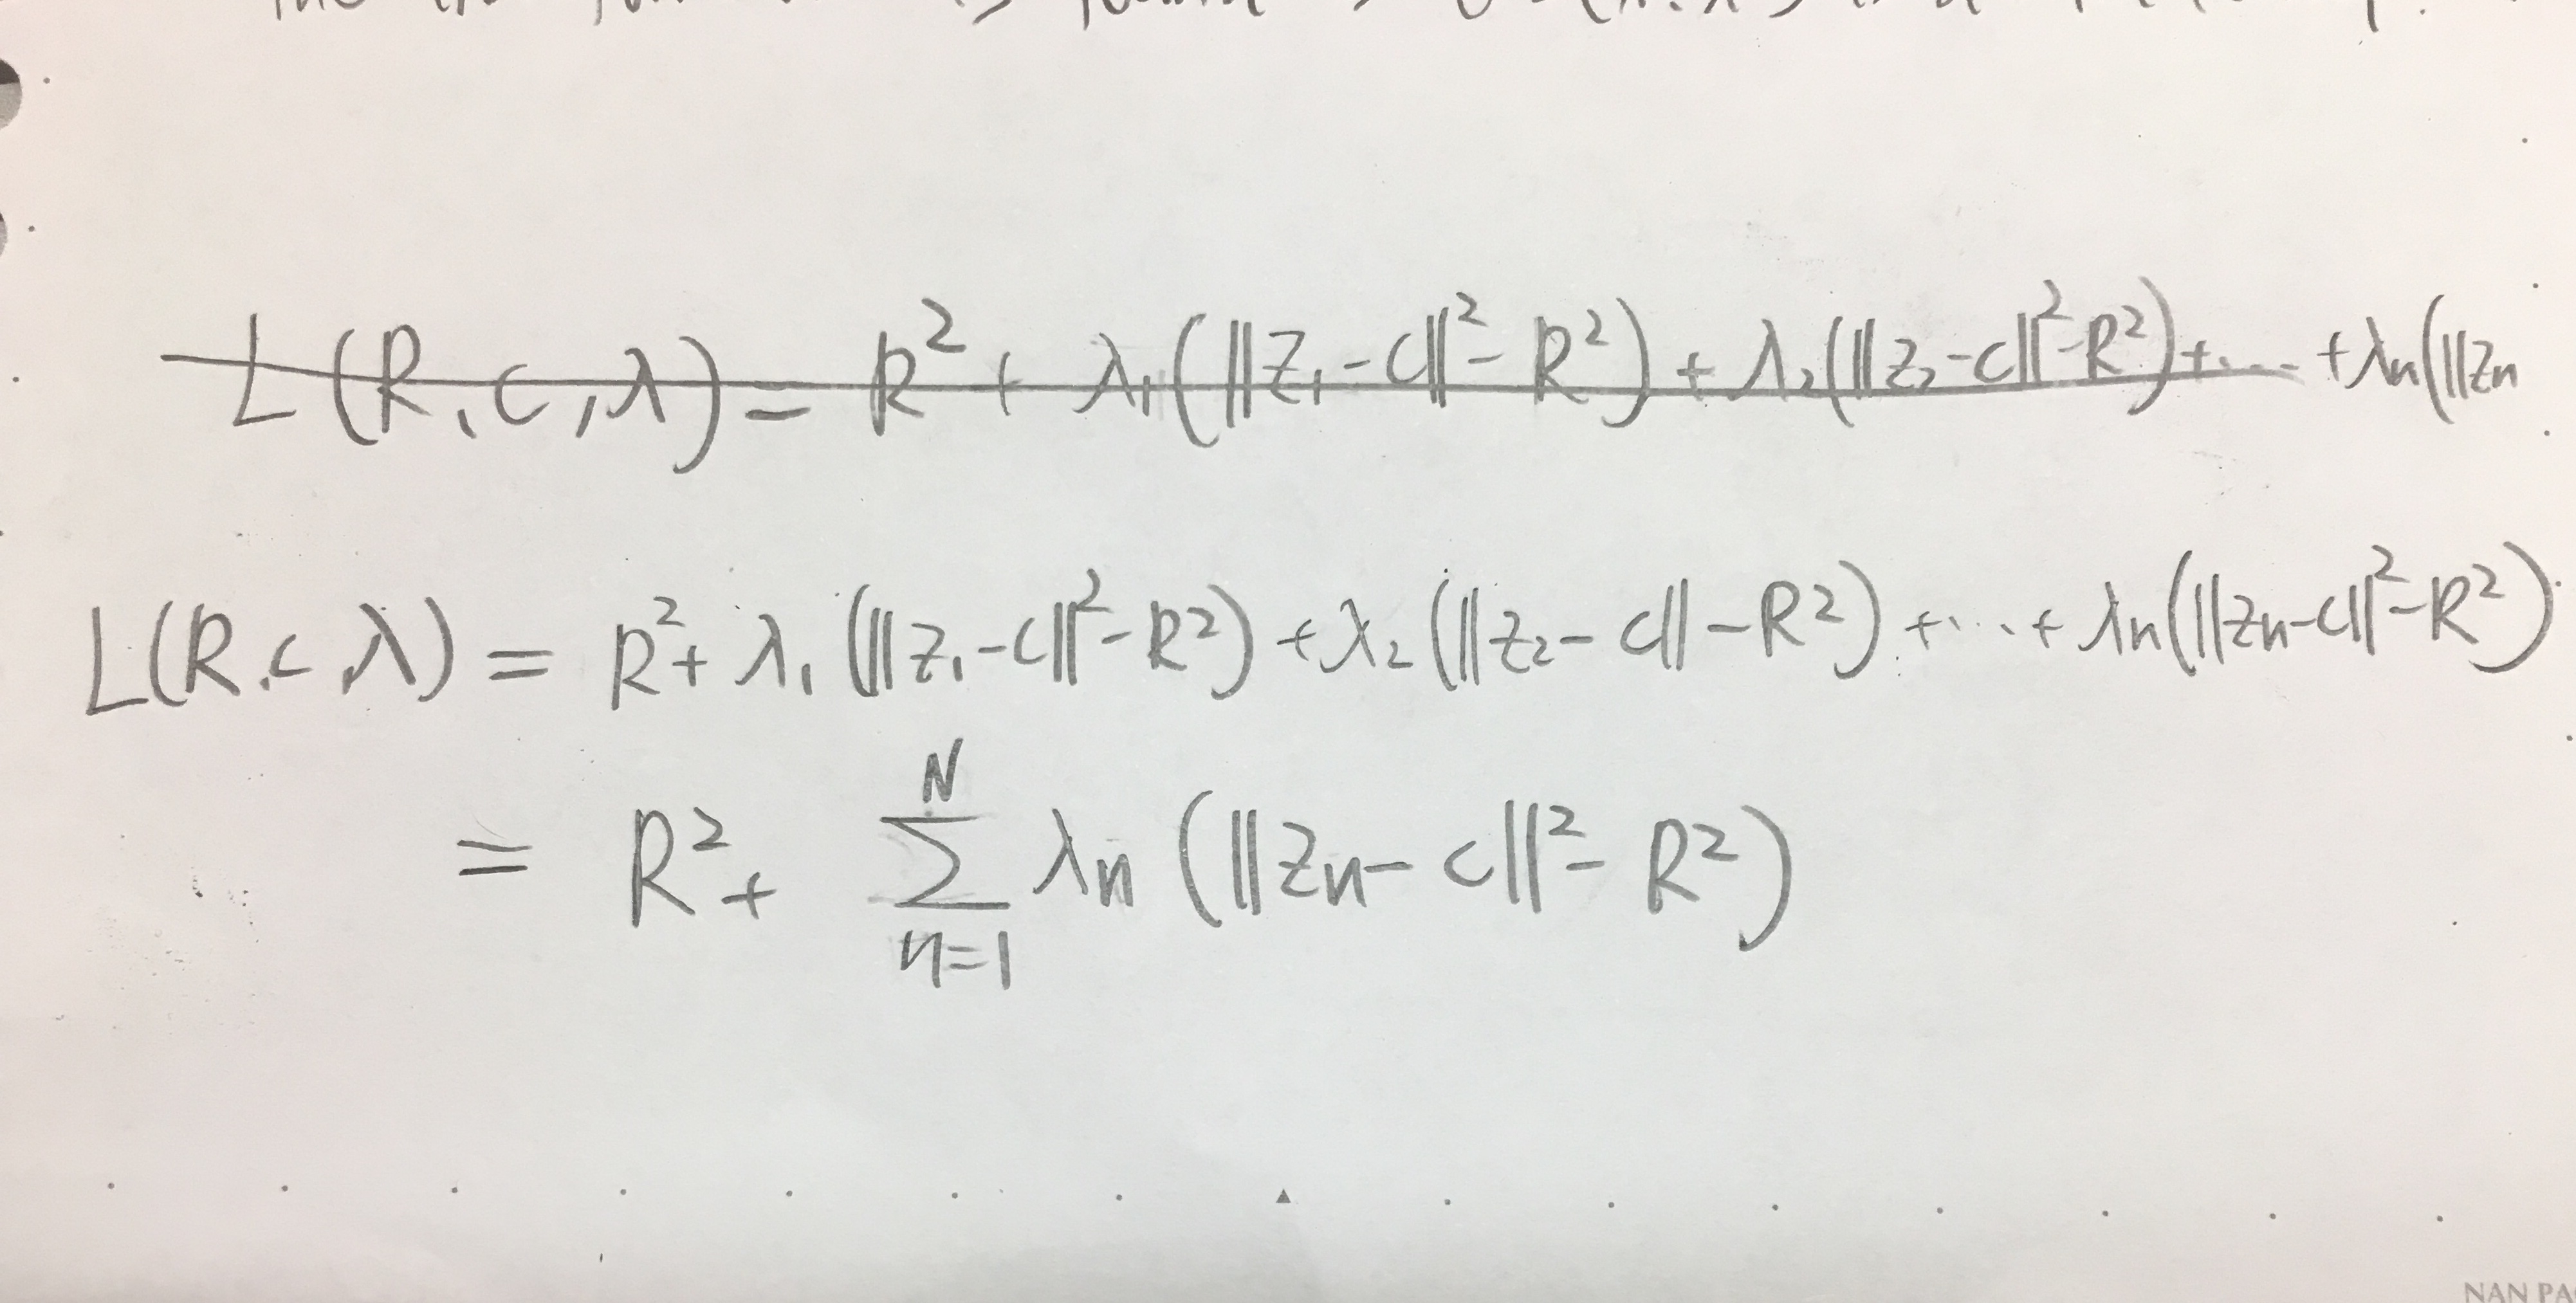 L(R, c, λ) = R² + λ₁(‖z₁ - c‖² - R²) + λ₂(‖z₂ - c‖² - R²) + .... + λn(‖zn
L(R, c, λ) = R² + λ₁ (‖z₁ - c‖² - R²) + λ₂ (‖z₂ - c‖ - R²) + ... + λn(‖zn - c‖² - R²)
= R² + ∑ₙ₌₁ᴺ λn (‖zn - c‖² - R²)
NAN PA